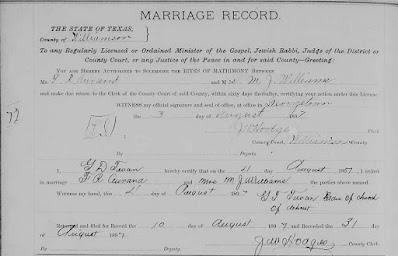 MARRIAGE RECORD.
THE STATE OF TEXAS,
County of Williamson
To any Regularly Licensed or Ordained Minister of the Gospel, Jewish Rabbi, Judge of the District or
County Court, or any Justice of the Peace in and for said County—Greeting:
YOU ARE HEREBY AUTHORIZED TO SOLEMNIZE THE RITES OF MATRIMONY BETWEEN
M and M M. J. Williams
and make due return to the Clerk of the County Court of said County, within sixty days thereafter, certifying your action under this License
WITNESS my official signature and seal of office, at office in Georgetown
the 3 day of August
J W Hodge Clerk
County Court, Williamson County
By Deputy.
I, hereby certify that on the 4 day August united
in marriage and Mrs M J Williams the parties above named.
Witness my hand, this 4 day of August
Returned and filed for Record the 10 day of August and Recorded the 31 day
of August
J W Hodges County Clerk.
By Deputy.